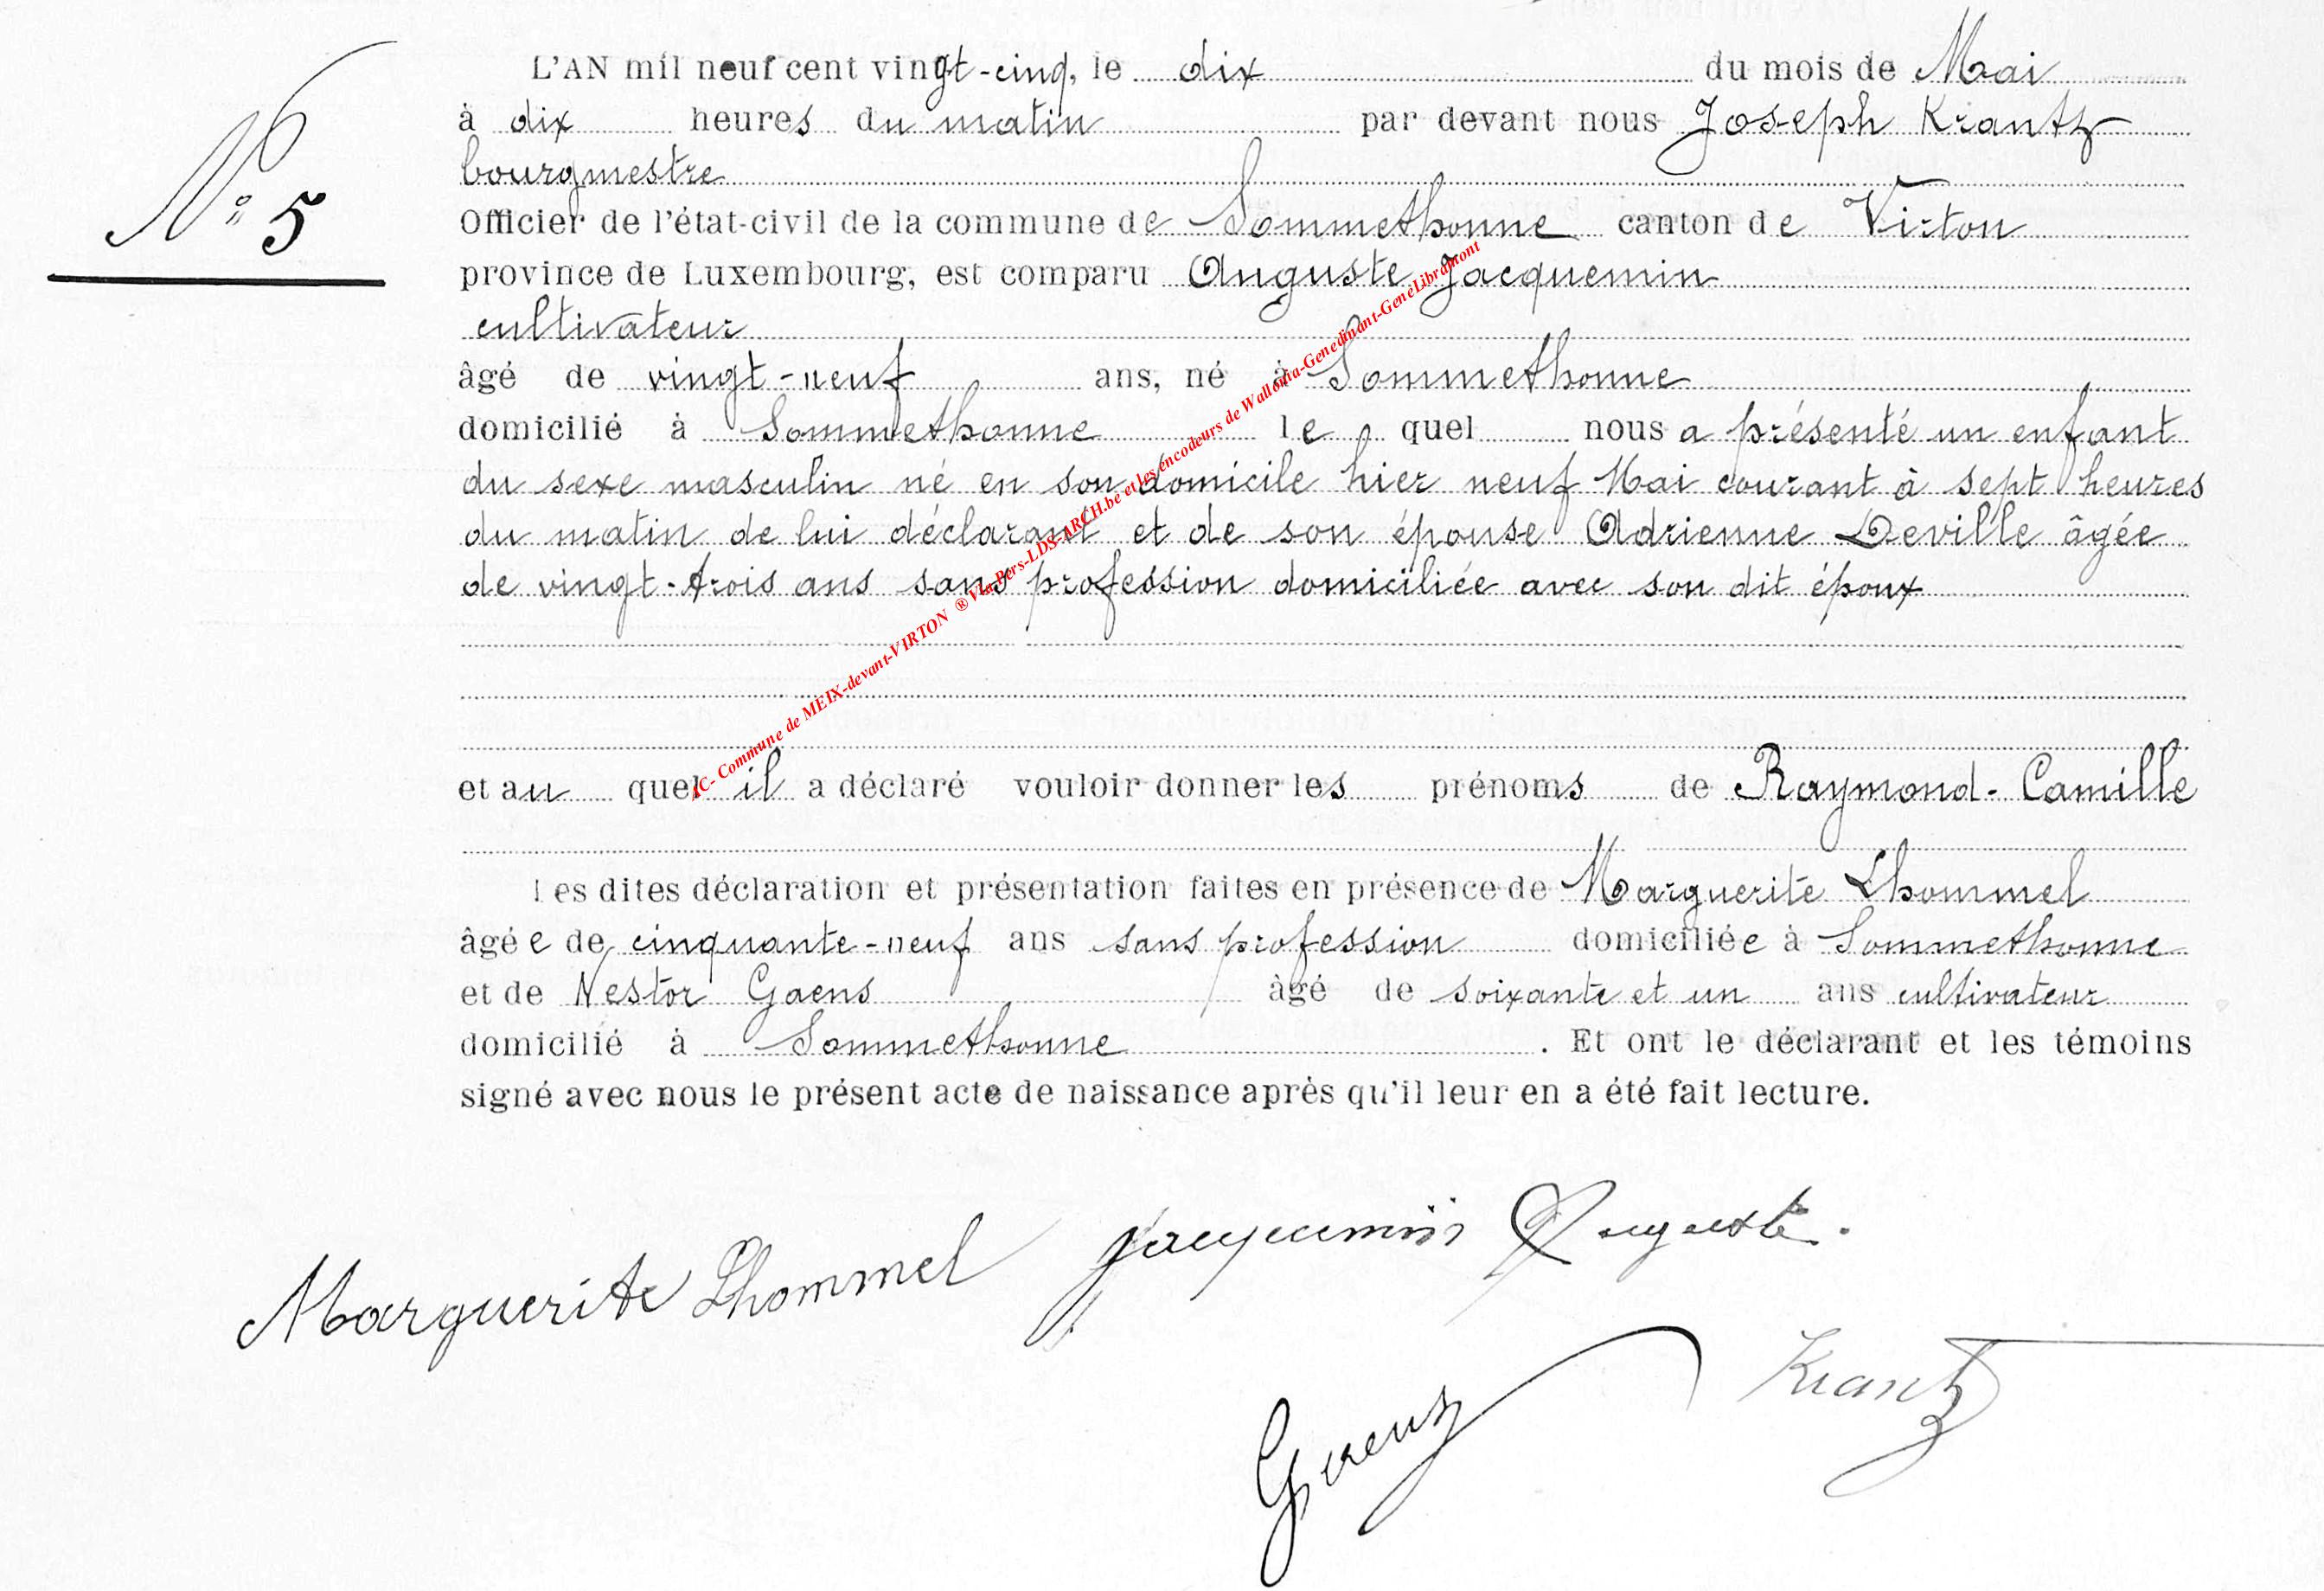 L'AN mil neuf cent vingt-cinq, le dix du mois de Mai
à dix heures du matin par devant nous Joseph Krantz
bourgmestre
N° 5
Officier de l'état-civil de la commune de Sommethonne canton de Virton
province de Luxembourg, est comparu Auguste Jacquemin
cultivateur
âgé de vingt-neuf ans, né à Sommethonne
domicilié à Sommethonne le quel nous a présenté un enfant
du sexe masculin né en son domicile hier neuf Mai courant à sept heures
du matin de lui déclarant et de son épouse Adrienne Deville âgée
de vingt-trois ans sans profession domiciliée avec son dit époux
IC- Commune de MEIX-devant-VIRTON ® Via Pers-LDS-ARCH.be et les encodeurs de Wallonia-Genedinant-GeneLibramont
et au quel il a déclaré vouloir donner les prénoms de Raymond-Camille
Les dites déclaration et présentation faites en présence de Marguerite Lhommel
âgée de cinquante-neuf ans sans profession domiciliée à Sommethonne
et de Nestor Gaens âgé de soixante et un ans cultivateur
domicilié à Sommethonne. Et ont le déclarant et les témoins
signé avec nous le présent acte de naissance après qu'il leur en a été fait lecture.
Marguerite Lhommel Jacquemin Auguste.
Krantz